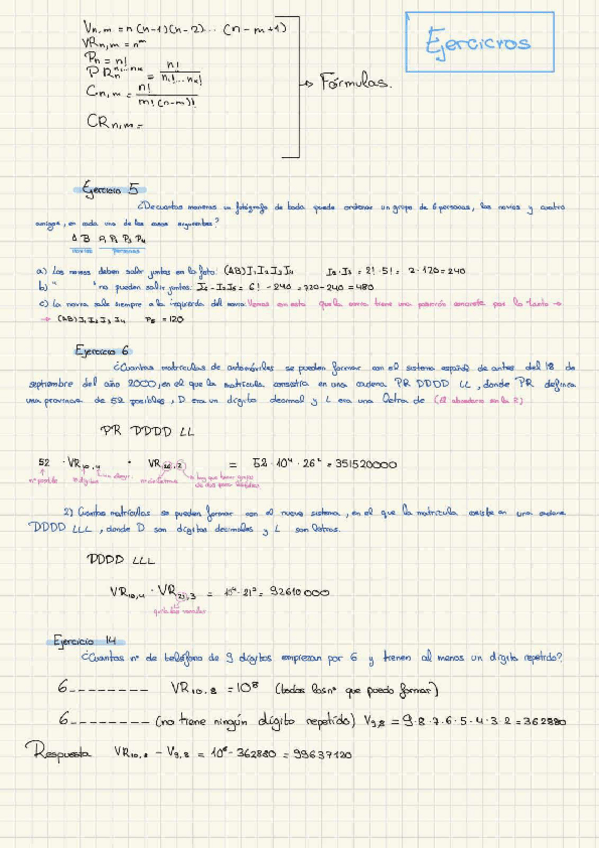 Ejercicios
Vn,m = n(n-1)(n-2)... (n-m+1)
VRn,m = n^m
Pn = n!
PRn^n1...nk = n! / n1!...nk!
Cn,m = n! / m!(n-m)!
CRn,m =
Fórmulas.
Ejercicio 5
¿De cuantas maneras un fotógrafo de boda puede ordenar un grupo de 6 personas, los novios y cuatro
amigos, en cada uno de los casos siguientes?
A B P1 P2 P3 P4
novios personas
a) Los novios deben salir juntos en la foto: (AB) I1 I2 I3 I4 = 2! · 5! = 2·120 = 240
b) " " no pueden salir juntos: = 6! - 240 = 720 - 240 = 480
c) La novia sale siempre a la izquierda del novio: Vemos en esto que la novia tiene una posición concreta por lo tanto →
→ (AB) I1 I2 I3 I4 P5 = 120
Ejercicio 6
¿Cuantas matriculas de automóviles se pueden formar con el sistema español de antes del 18 de
septiembre del año 2000, en el que la matricula consistia en una cadena PR DDDD LL, donde PR
una provincia de 52 posibles, D era un dígito decimal y L era una letra de
PR DDDD LL
52 · VR10,4 · VR26,2 = 52 · 10⁴ · 26² = 351520000
2) Cuantas matriculas se pueden formar con el nuevo sistema, en el que la matricula consiste en una cadena
DDDD LLL, donde D son dígitos decimales y L son letras.
DDDD LLL
VR10,4 · VR21,3 = 10⁴ · 21³ = 92610000
Ejercicio 14
¿Cuantos nº de teléfono de 9 dígitos empiezan por 6 y tienen al menos un dígito repetido?
6 - - - - - - - - VR10,8 = 10⁸ (todos los nº que puedo formar)
6 - - - - - - - - (no tiene ningún dígito repetido) V9,8 = 9·8·7·6·5·4·3·2 = 362880
Respuesta VR10,8 - V9,8 = 10⁸ - 362880 = 99637120